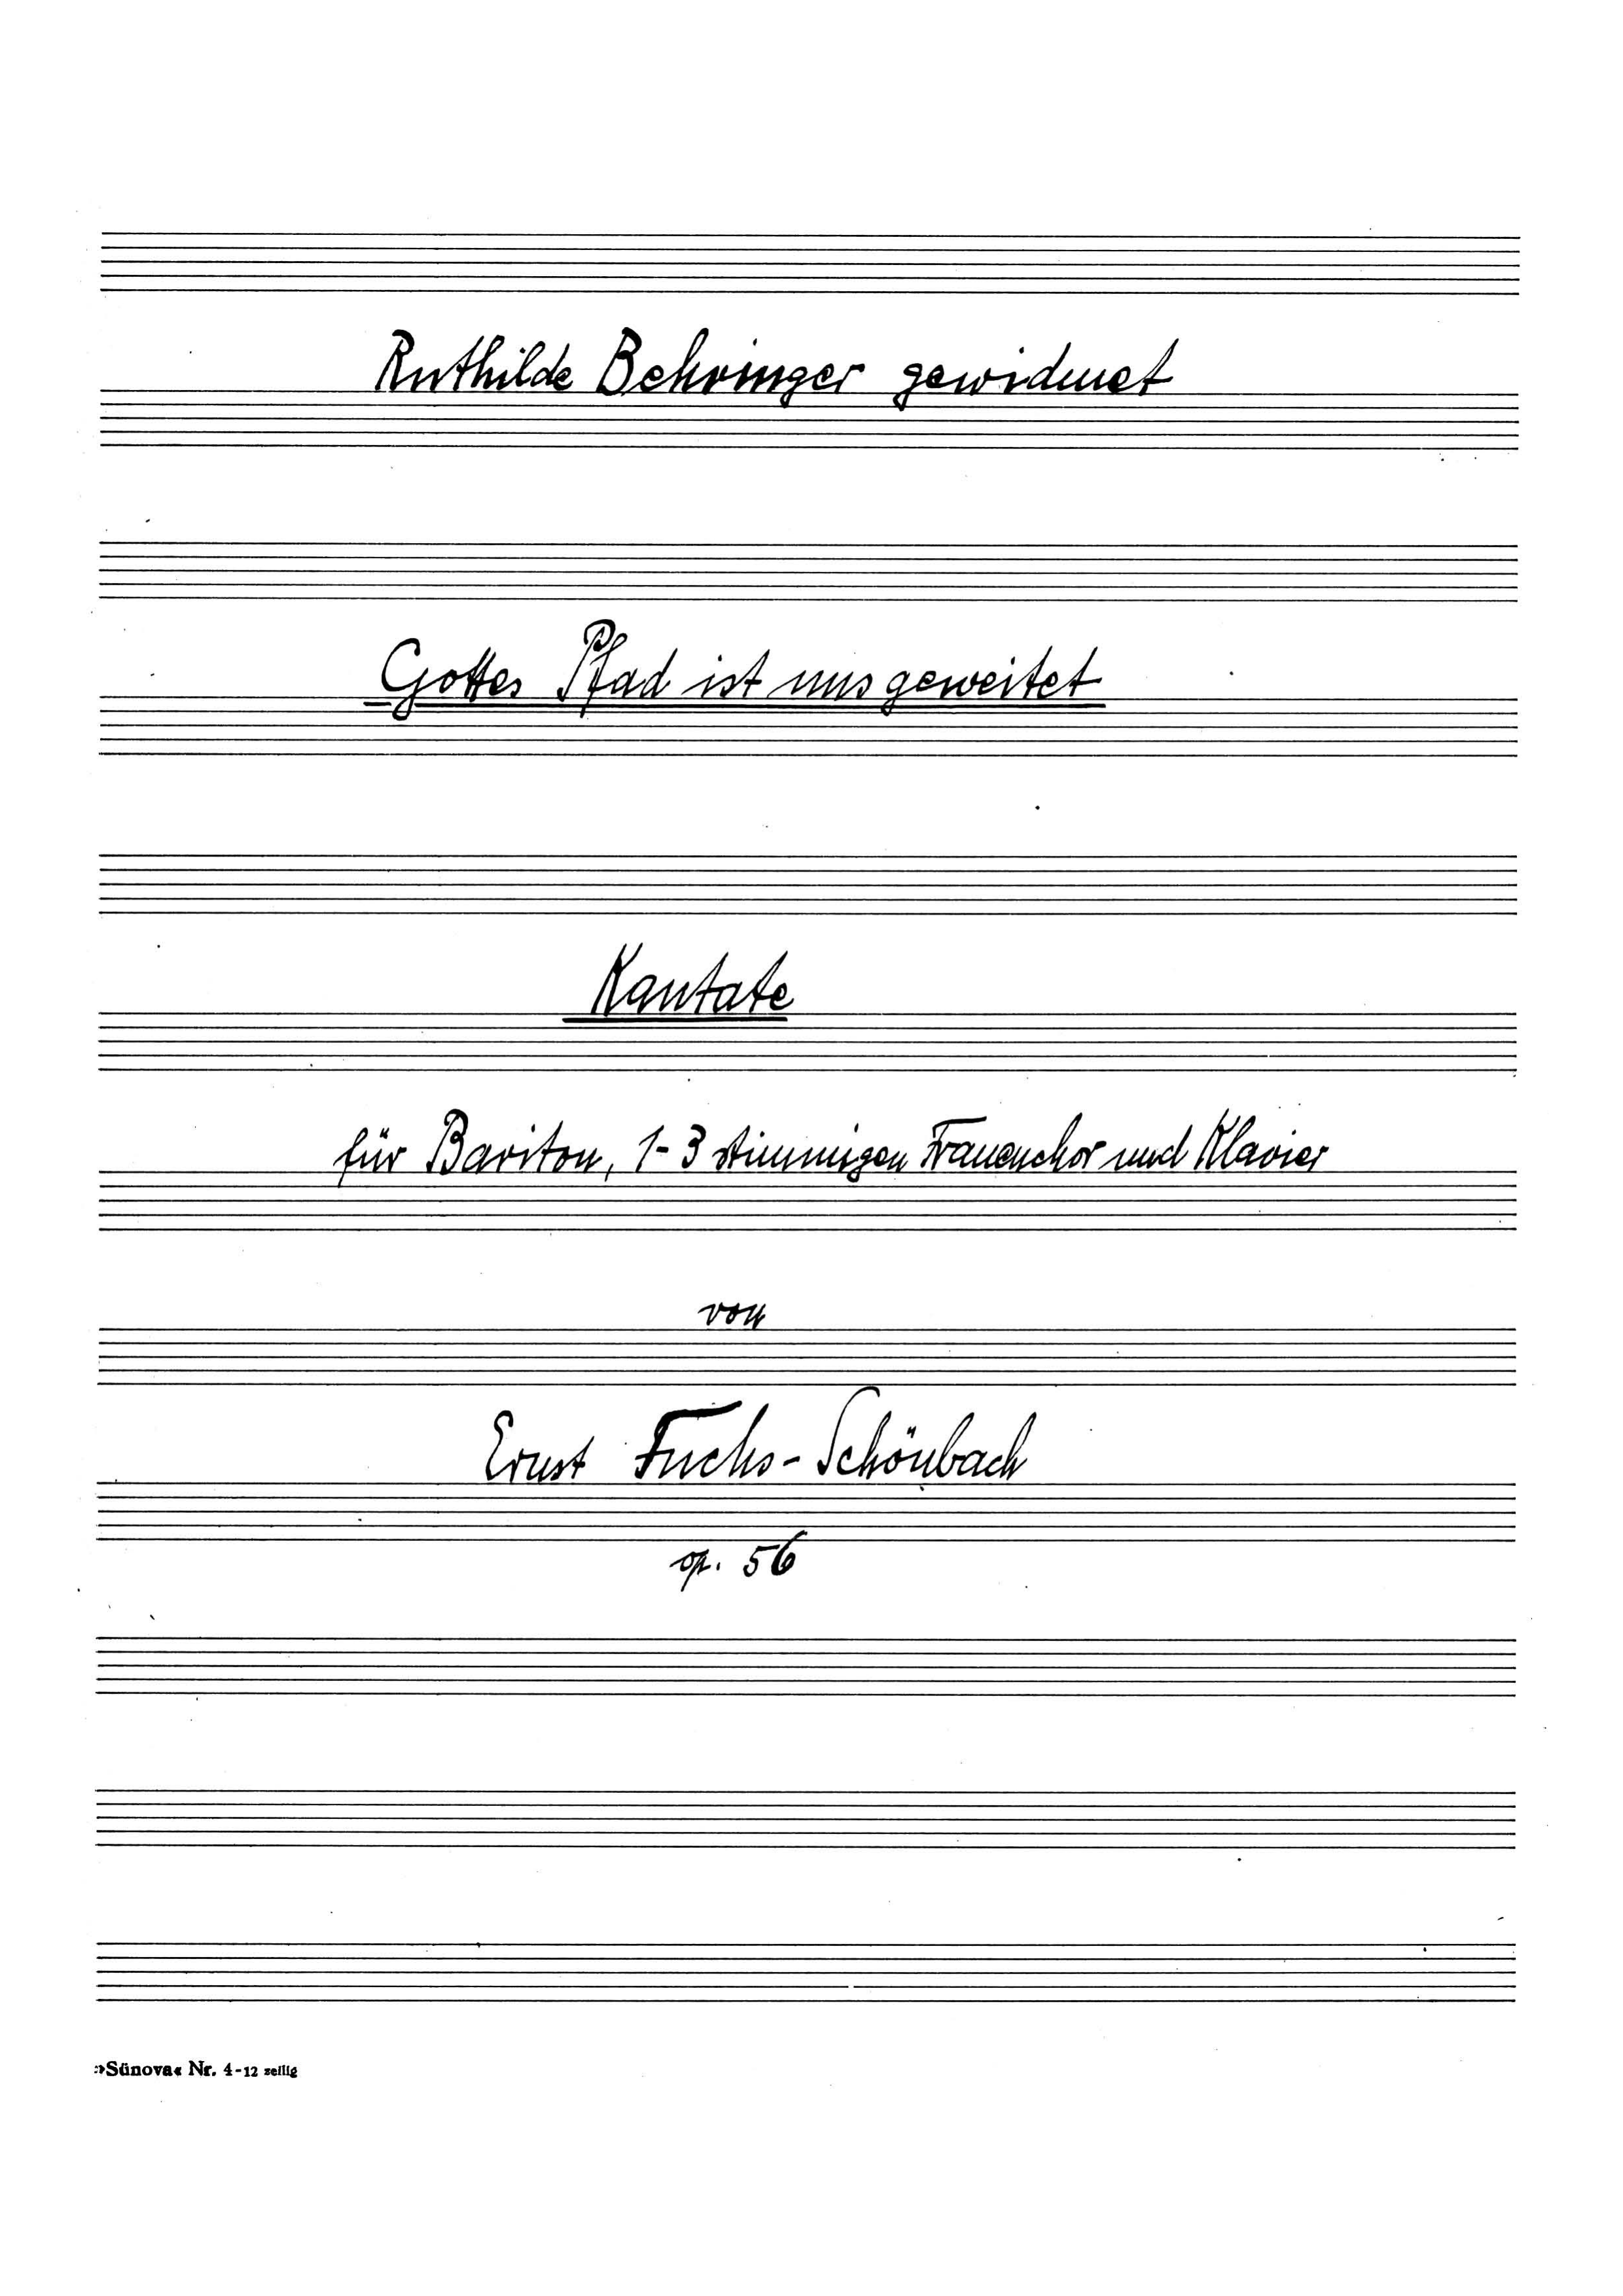 Ruthilde Behringer gewidmet
Gottes Pfad ist uns geweitet
Kantate
für Bariton, 1-3 stimmigen Frauenchor und Klavier
von
Ernst Fuchs-Schönbach
op. 56
»Sünova« Nr. 4-12 zeilig